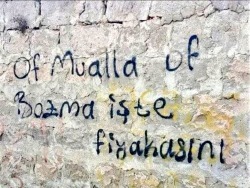 Of Mualla of
Bozma işte
fiyakasını